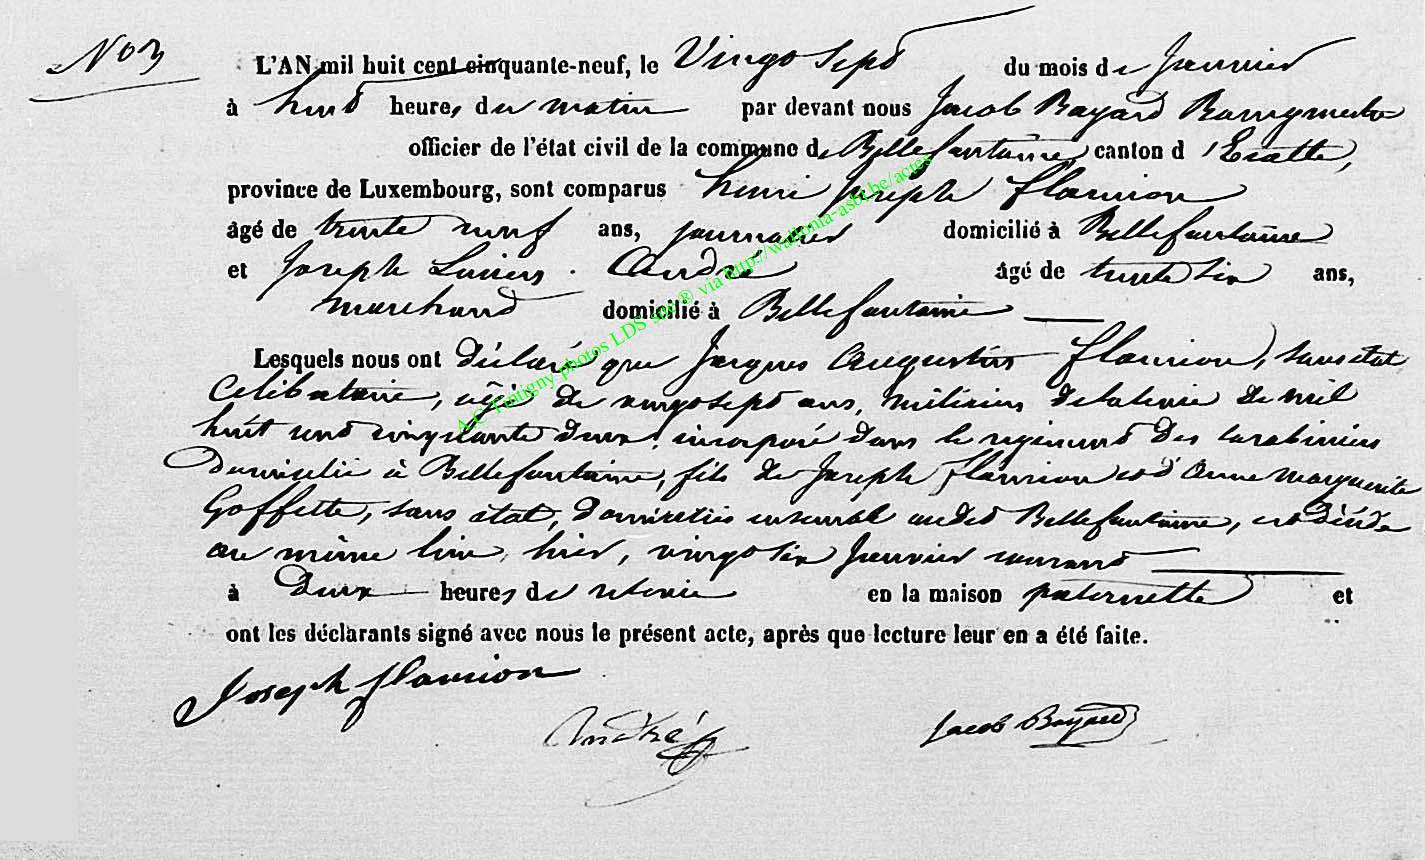 No 3
L'AN mil huit cent cinquante-neuf, le Vingt Sept du mois de Janvier
à huit heures du matin par devant nous Jacob Bayard Bourgmestre
officier de l'état civil de la commune de Bellefontaine, canton d'Etalle,
province de Luxembourg, sont comparus henri Joseph flamion
âgé de trente neuf ans, journalier domicilié à Bellefontaine
et Joseph André âgé de trente six ans,
marchand domicilié à Bellefontaine
Lesquels nous ont déclaré que Jacques Augustin flamion, sans état
celibataire, âgé de vingt sept ans, milicien de la levée de mil
huit cent cinquante deux, incorporé dans le regiment des carabiniers
domicilié à Bellefontaine, fils de Joseph flamion et d'anne marguerite
Goffette, sans état, domiciliés ensemble audit Bellefontaine, est décédé
au même lieu, hier, vingt six Janvier courant
à deux heures de relevée en la maison paternelle et
ont les déclarants signé avec nous le présent acte, après que lecture leur en a été faite.
Joseph flamion
André
Jacob Bayard
A.C. Tintigny photos LDS sur ® via http://wallonia-asbl.be/actes